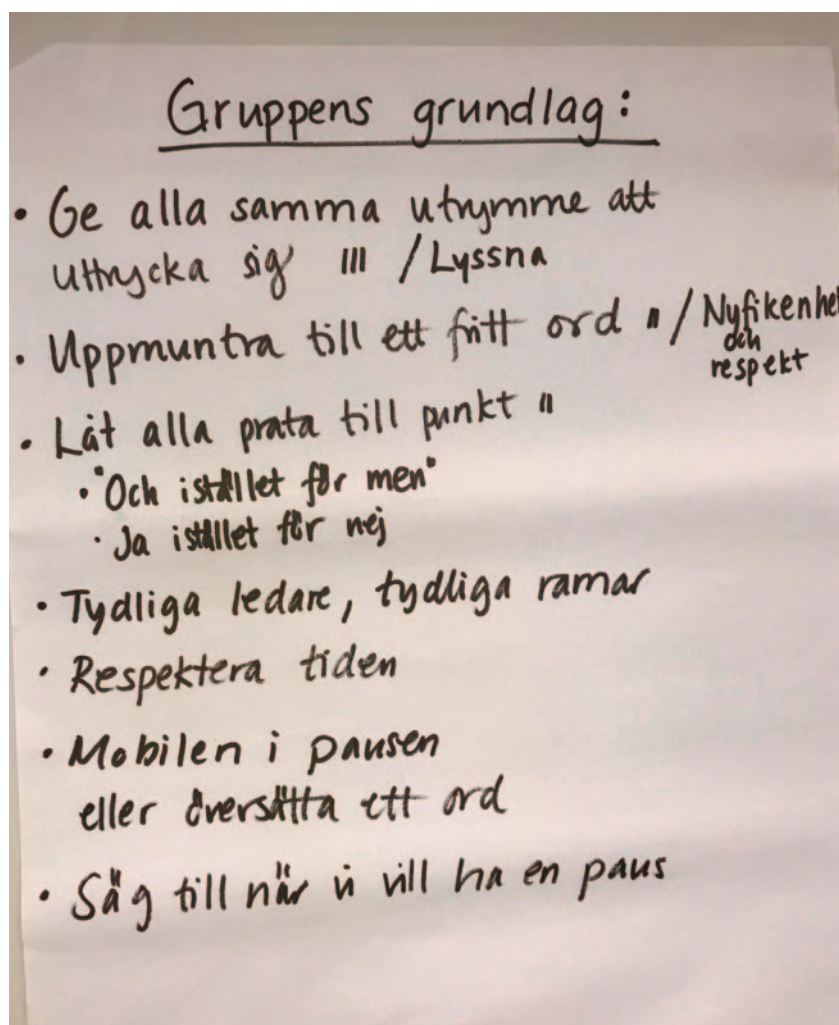 Gruppens grundlag:
• Ge alla samma utrymme att
uttrycka sig III / Lyssna
• Uppmuntra till ett fritt ord II / Nyfikenhet
och
respekt
• Låt alla prata till punkt II
• "Och istället för men"
• Ja istället för nej
• Tydliga ledare, tydliga ramar
• Respektera tiden
• Mobilen i pausen
eller översätta ett ord
• Säg till när vi vill ha en paus